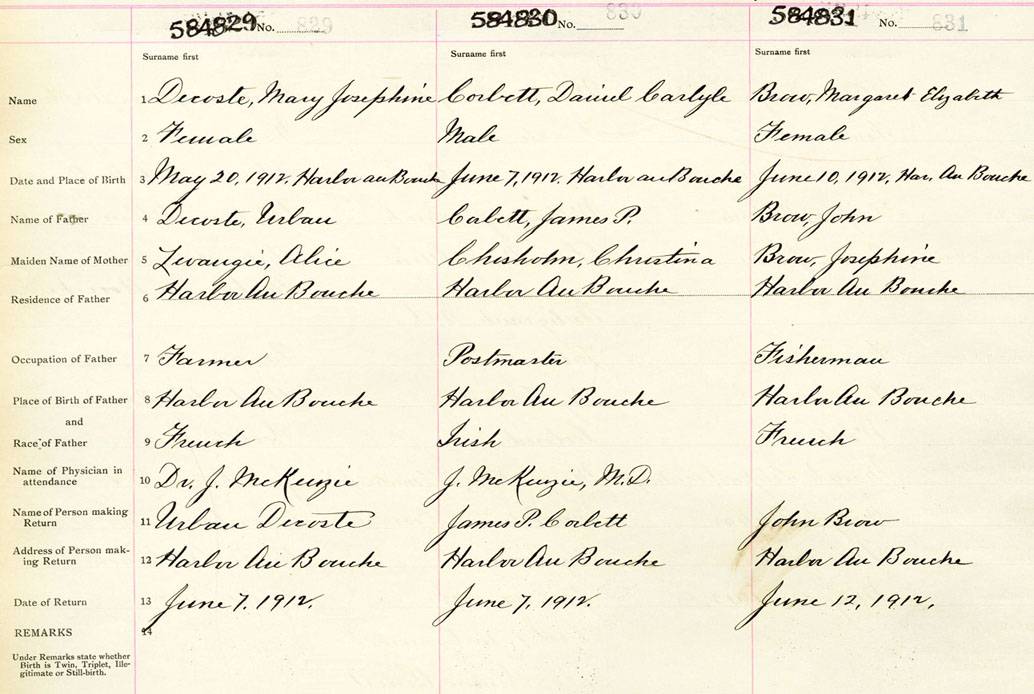 584829 No. 829 584830 No. 830 584831 No. 831
Surname first Surname first Surname first
Name 1 Decoste, Mary Josephine Corbett, Daniel Carlyle Brow, Margaret Elizabeth
Sex 2 Female Male Female
Date and Place of Birth 3 May 20, 1912. Harbor au Bouche June 7, 1912. Harbor au Bouche June 10, 1912, Har. Au Bouche
Name of Father 4 Decoste, Urban Corbett, James P. Brow, John
Maiden Name of Mother 5 Alice Chisholm, Christina Brow, Josephine
Residence of Father 6 Harbor Au Bouche Harbor Au Bouche Harbor Au Bouche
Occupation of Father 7 Farmer Postmaster Fisherman
Place of Birth of Father 8 Harbor Au Bouche Harbor Au Bouche Harbor Au Bouche
and
Race of Father 9 French Irish French
Name of Physician in
attendance 10 Dr. J. McKenzie J. McKenzie, M.D.
Name of Person making
Return 11 Urban Decoste James P. Corbett John Brow
Address of Person mak-
ing Return 12 Harbor Au Bouche Harbor Au Bouche Harbor Au Bouche
Date of Return 13 June 7, 1912. June 7, 1912. June 12, 1912,
REMARKS 14
Under Remarks state whether
Birth is Twin, Triplet, Ille-
gitimate or Still-birth.